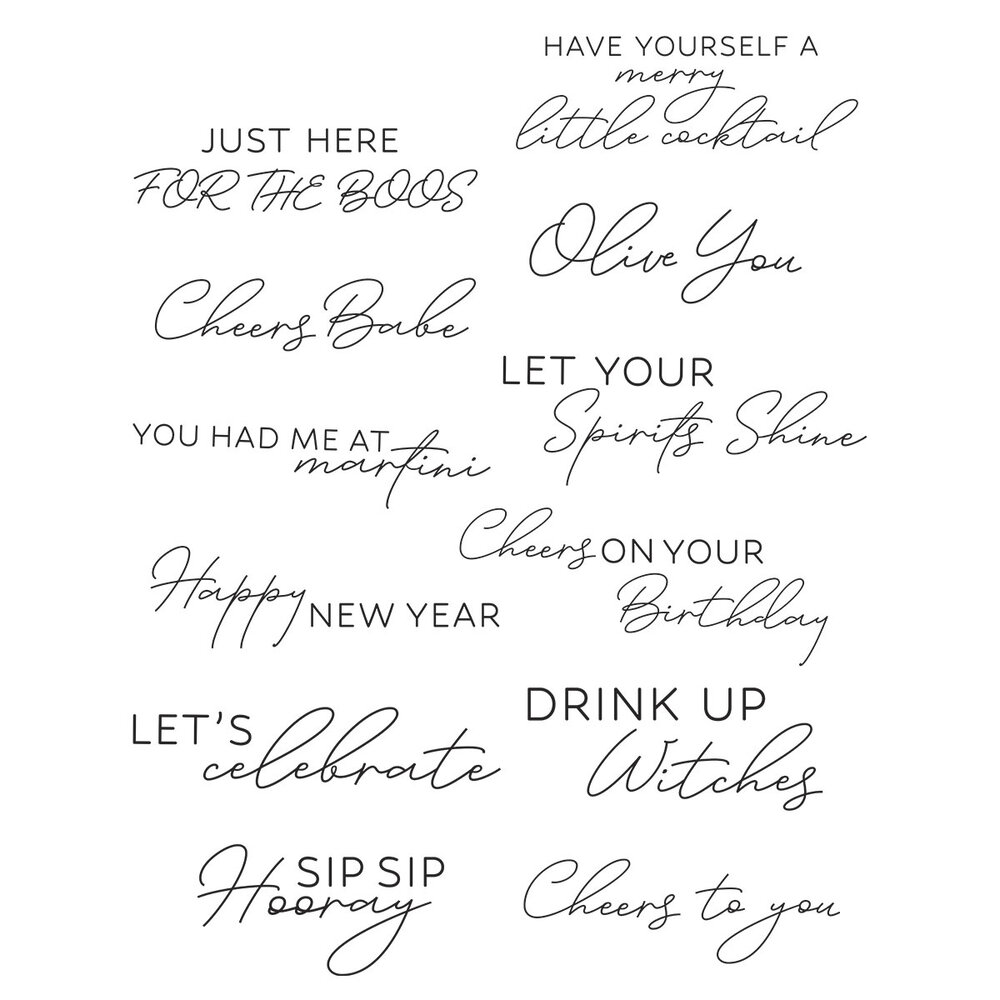 HAVE YOURSELF A
merry
little cocktail
JUST HERE
FOR THE BOOS
Olive You
Cheers Babe
LET YOUR
Spirits Shine
YOU HAD ME AT
martini
Cheers ON YOUR
Birthday
Happy NEW YEAR
LET'S
celebrate
DRINK UP
Witches
SIP SIP
Hooray
Cheers to you